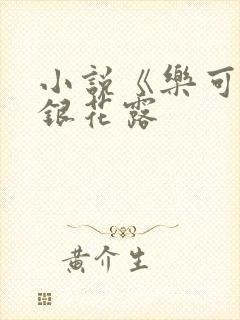 小説《樂可
銀花露
黄介生